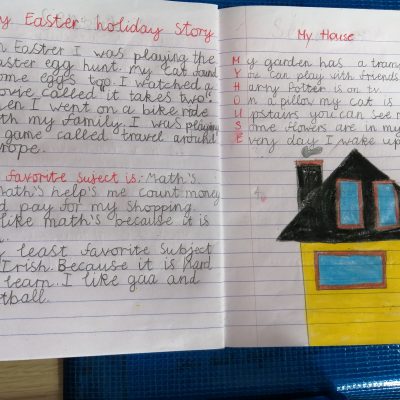 y Easter holiday Story
Easter I was playing the
aster egg hunt. My cat found
ome eggs too. I watched a
ovie called "it takes two".
hen I went on a bike ride
ith my family. I was playing
game called travel around
rope.
favorite subject is: Math's.
Math's help's me count money
d pay for my shopping.
like math's because it is
y least favorite subject
Irish. Because it is hard
learn. I like gaa and
tball.
My House
My garden has a tram
You can play with friends
Harry Potter is on tv
On a pillow my cat is
Upstairs you can see m
Some flowers are in my
Every day I wake up